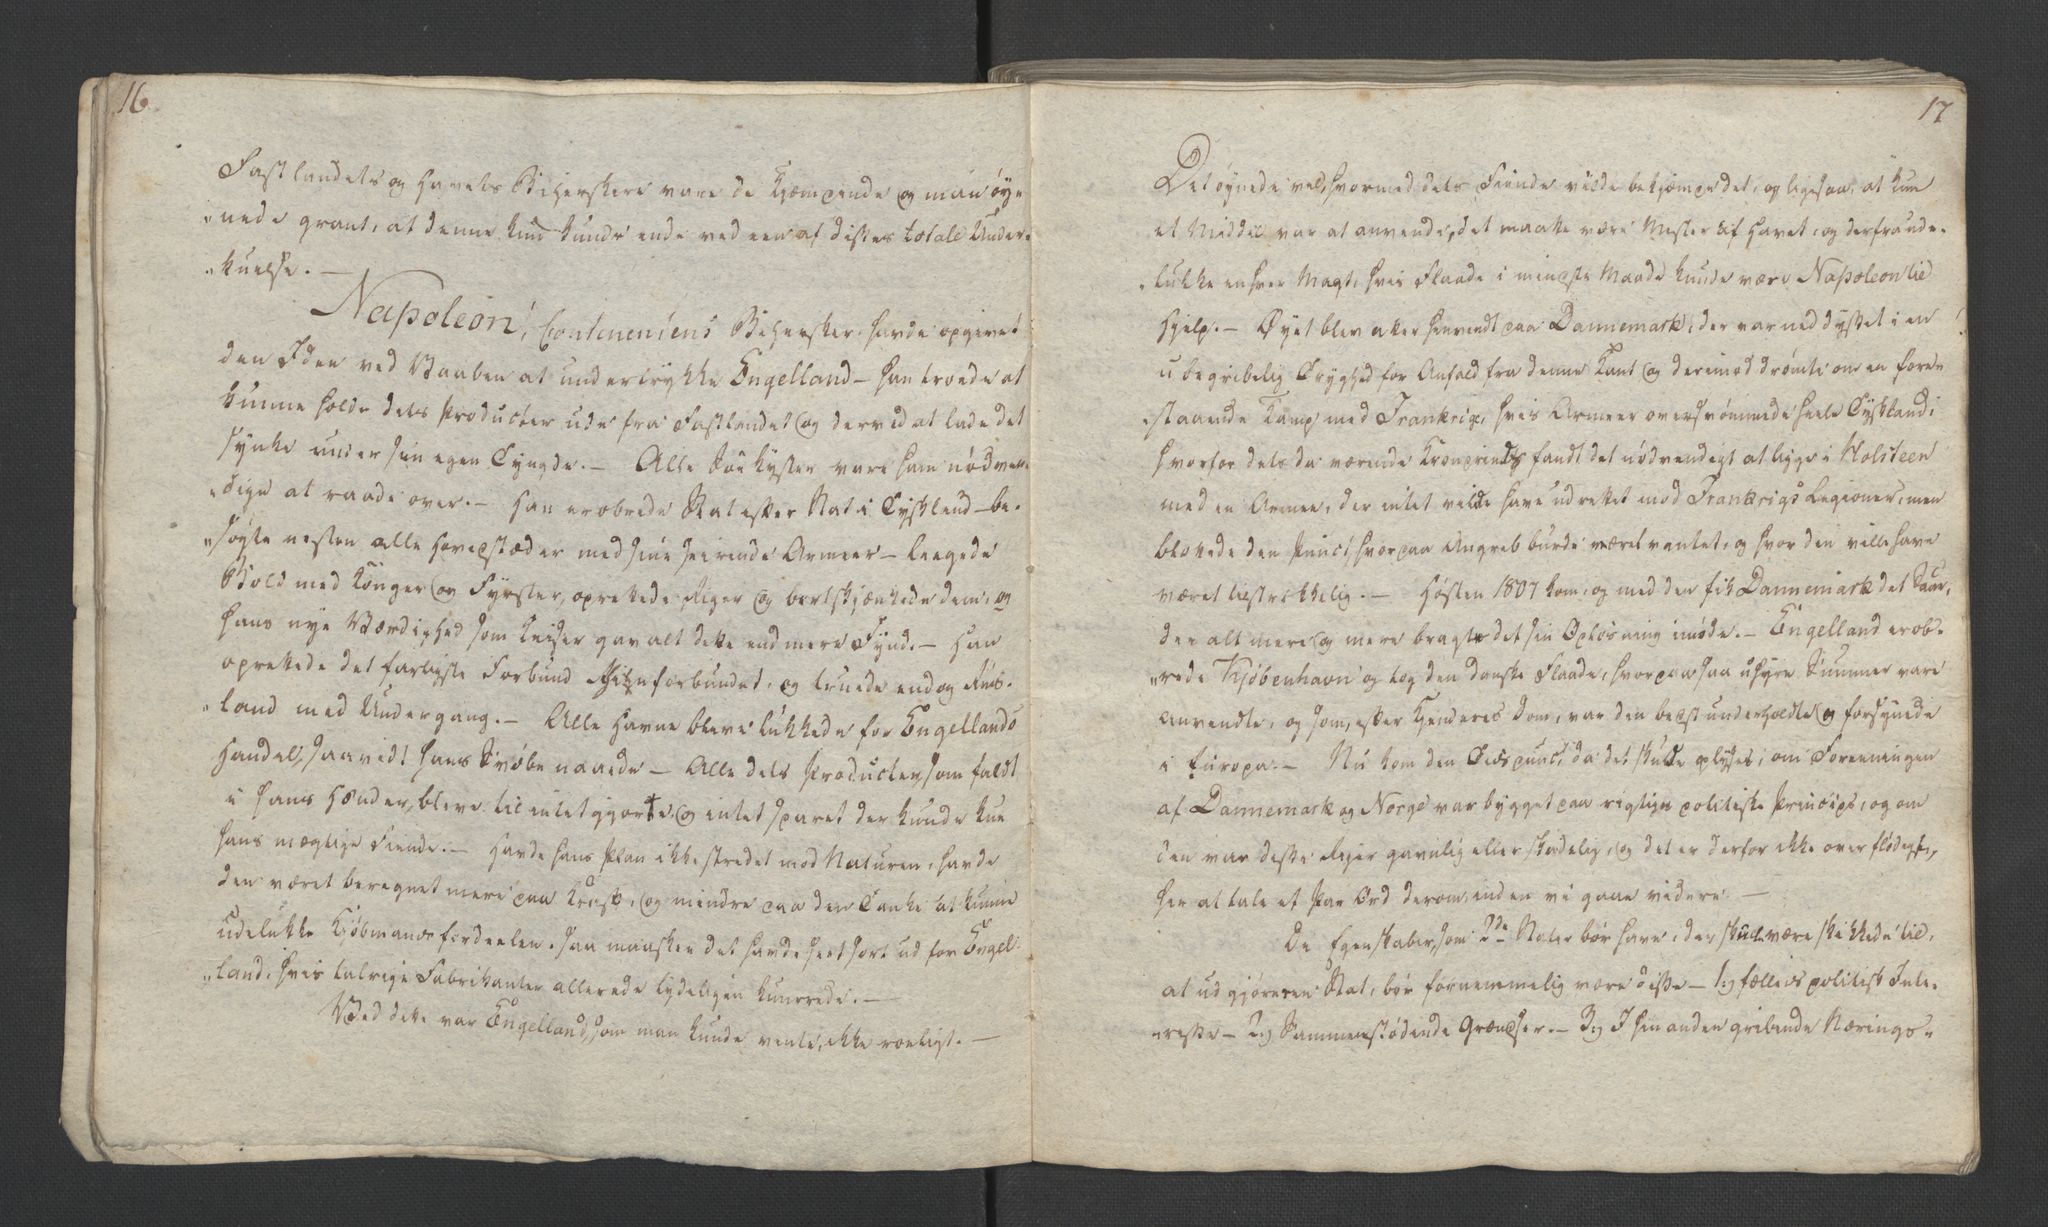 16
Fastlandets og Havets Beherskere vare de Kjæmpende og man öyn
nede grant, at denne Krig kunde ende ved een af disses totale Under-
kuelse. —
Napoleon, Continentens Behersker havde opgivet
den Idee ved Vaaben at undertrykke Engelland — han troede at
kunne holde dets Producter ude fra Fastlandet og derved at lade det
synke under sin egen Tyngde. — Alle Söekyster vare ham nödven-
dige at raade over. — Han erobrede Stat efter Stat i Tyskland — be-
søgte nesten alle Hovedstæder med sine seirende Armeer — leegede
Bold med Konger og Fyrster, oprettede Riger og bortskjænkede dem, og
hans nye Værdighed som Keiser gav alt dette end mere Fynd. — Han
oprettede det farligste Forbund Rhinforbundet, og truede endog Rus-
land med Undergang. — Alle Havne bleve lukkede for Engellands
Handel, saavidt hans Svøbe naaede — Alle dets Producter, som faldt
i hans Hænder, bleve tilintetgjorte, og intet sparet der kunde kue
hans mægtige Fiende. — Havde hans Plan ikke stredet mod Naturen, havde
den været beregnet mere paa Kraft, og mindre paa den Tanke at kunne
udelukke Kjøbmandsfordeelen, saa maaskee det havde seet sort ud for Engel-
land, hvis talrige Fabrikanter allerede tydeligen knurrede. —
Ved dette var Engelland, som man kunde vente, ikke roeligt. —
17
Det øynede vel, hvormed dets Fiende vilde bekjæmpe det, og ligesaa, at kun
et Middel var at anvende, det maatte være Mester af Havet, og derfra ude-
lukke enhver Magt, hvis Flaade i mindste Maade kunde være Napoleon til
Hjelp. — Øyet blev atter henvendt paa Dannemark, der var neddysset i en
ubegribelig Tryghed for Anfald fra denne Kant og derimod drömte om en fore-
staaende Kamp med Frankrig, hvis Armeer oversvömmede heele Tyskland;
hvorfor dets da værende Kronprinds fandt det nödvendigt at ligge i Holsteen
med en Armee, der intet vilde have udrettet mod Frankrigs Legioner, men
blottede den Punct, hvorpaa Angreb burde været ventet, og hvor den ville have
været tilstrekkelig. — Høsten 1807 kom, og med den fik Dannemark det Saar,
der alt mere og mere bragte det sin Opløsning imöde. — Engelland erob-
rede Kjøbenhavn og tog den danske Flaade, hvorpaa saa uhyre Summer vare
anvendte, og som, efter Kjenderes Dom, var den bedst underholdte og forsynede
i Europa. — Nu kom den Tidspunct, da det skulde oplyses, om Foreeningen
af Dannemark og Norge var bygget paa rigtige politiske Principer, og om
den var disse Riger gavnlig eller skadelig, og det er derfor ikke overflødigt,
her at tale et Par Ord derom, inden vi gaae videre. —
De Egenskaber, som 2de Stater bør have, der skulle være skikkede til,
at udgjøre een Stat, bør fornemmelig være disse — 1.) fælleds politisk Inte-
resse — 2.) Sammenstødende Grændser. — 3.) I hinanden gribende Nærings-